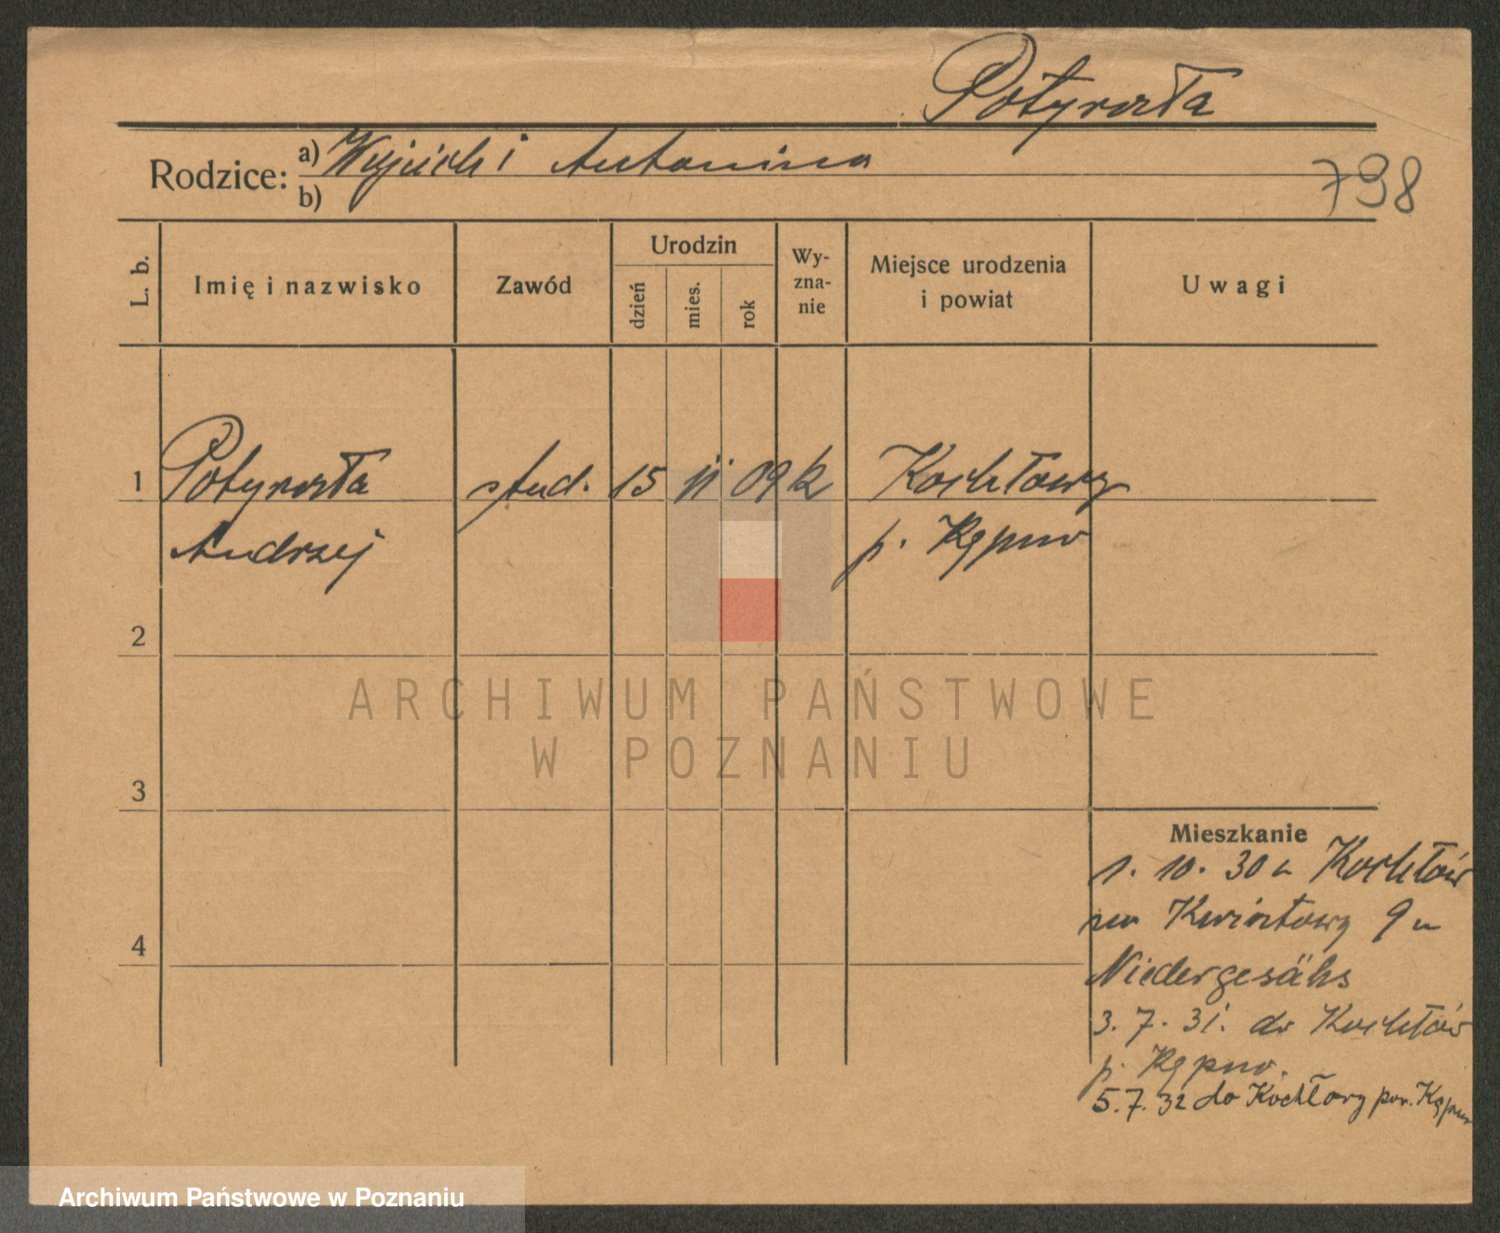 Potyrała
Rodzice: a) Wojciech i Antonina
b)
798
L. b.
Imię i nazwisko
Zawód
Urodzin
dzień
mies.
rok
Wy-
zna-
nie
Miejsce urodzenia
i powiat
Uwagi
1 Potyrała stud. 15 11 09 k Kochłowy
Andrzej p. Kępno
2
ARCHIWUM PAŃSTWOWE
W POZNANIU
3
Mieszkanie
1. 10. 30 u Kochłów
4
Niedergesäss
3. 7. 31. do Kochłów
p. Kępno.
5.7.32 do Kochłowy pow. Kępno
Archiwum Państwowe w Poznaniu